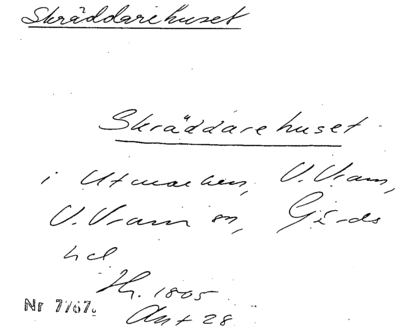 Skräddarehuset
Skräddarehuset
i Utmarken, V. Vram,
V. Vram sn, Gärds
hd
Hr. 1805
Ant 28
Nr 7767.